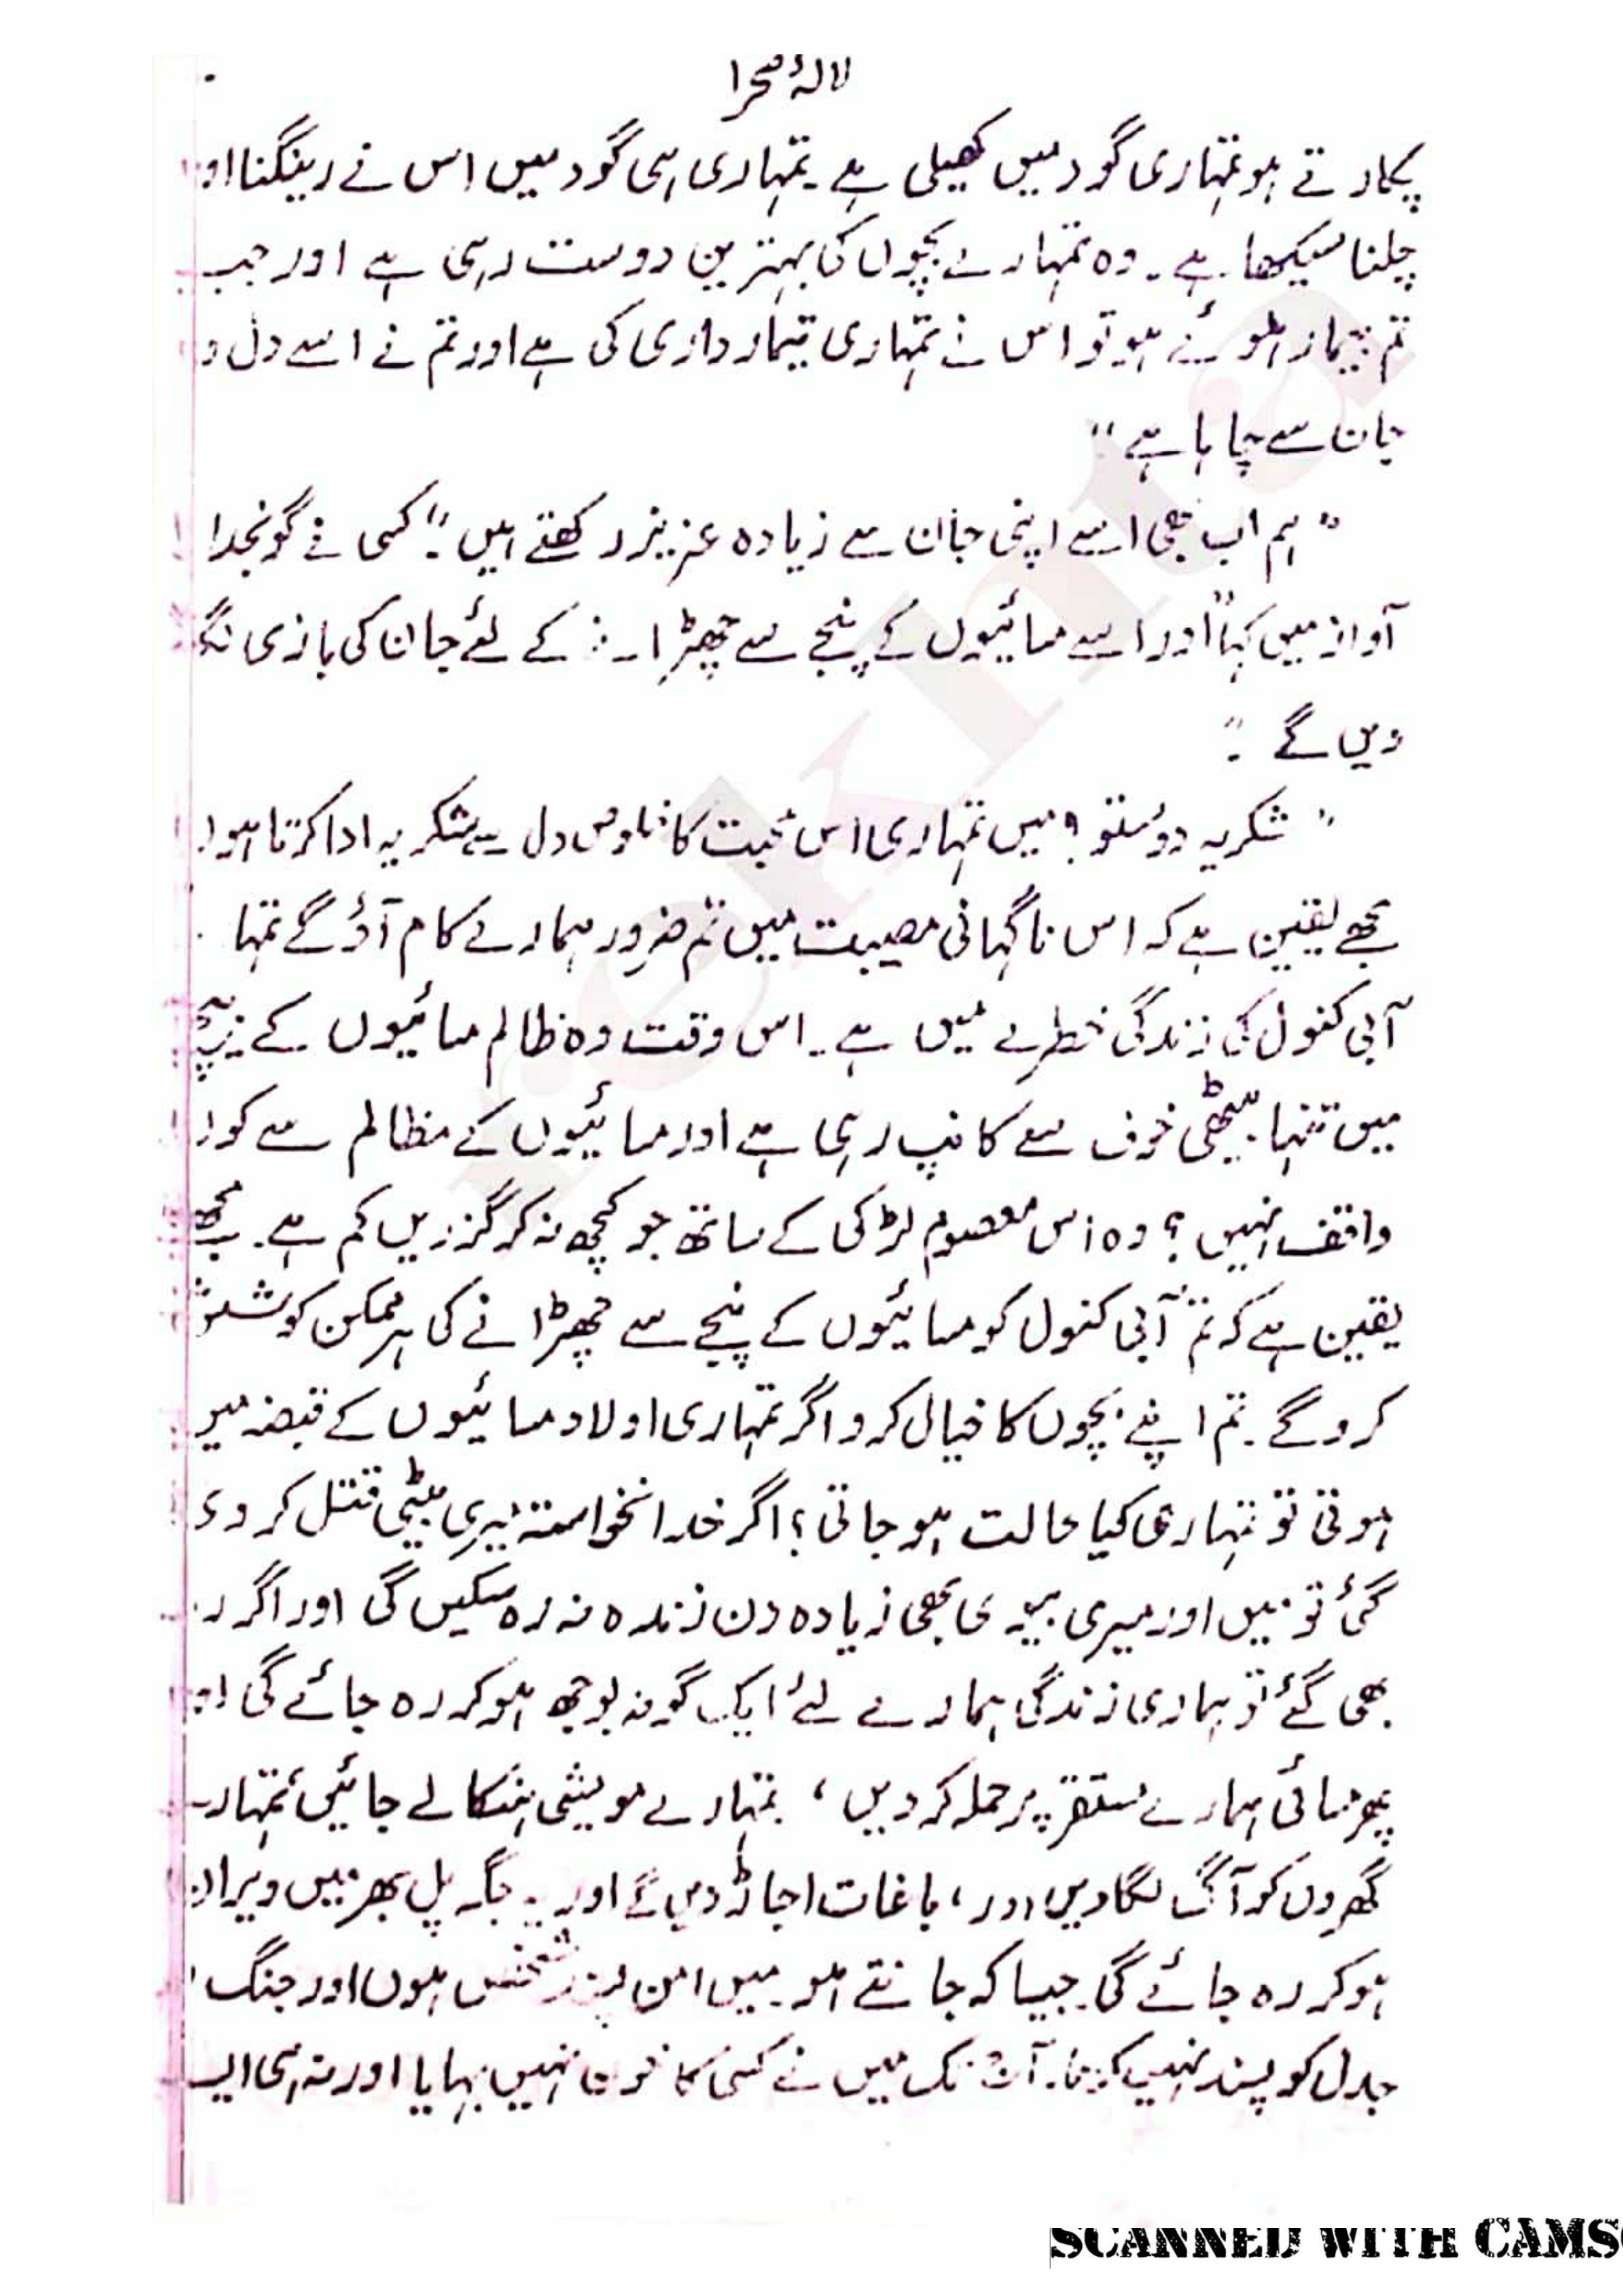 لالۂ صحرا
پکارتے ہو تمہاری گود میں کھیلی ہے۔ تمہاری ہی گود میں اس نے رینگنا او
چلنا سیکھا ہے۔ وہ تمہارے بچوں کی بہترین دوست رہی ہے اور جب
تم بیمار ہوئے ہو تو اس نے تمہاری تیمارداری کی ہے اور تم نے اسے دل و
جان سے چاہا ہے"
"ہم اب بھی اسے اپنی جان سے زیادہ عزیز رکھتے ہیں"۔ کسی نے گونجدا
آواز میں کہا "اور اسے مسائیوں کے پنجے سے چھڑا کے لئے جان کی بازی لگا
دیں گے۔"
"شکریہ دوستو! میں تمہاری اس محبت کا خلوص دل سے شکریہ ادا کرتا ہوں
مجھے یقین ہے کہ اس ناگہانی مصیبت میں تم ضرور ہمارے کام آؤ گے تمہا
آبی کنول کی زندگی خطرے میں ہے۔ اس وقت وہ ظالم مسائیوں کے پنجے
میں تنہا بیٹھی خوف سے کانپ رہی ہے اور مسائیوں کے مظالم سے کو
واقف نہیں؟ وہ اس معصوم لڑکی کے ساتھ جو کچھ نہ کر گزریں کم ہے۔ مجھے
یقین ہے کہ تم آبی کنول کو مسائیوں کے پنجے سے چھڑانے کی ہر ممکن کوشش
کرو گے۔ تم اپنے بچوں کا خیال کرو اگر تمہاری اولاد مسائیوں کے قبضہ میں
ہوتی تو تمہاری کیا حالت ہو جاتی؟ اگر خدانخواستہ میری بیٹی قتل کر دی
گئی تو میں اور میری بیوی بھی زیادہ دن زندہ نہ رہ سکیں گی اور اگر ر
بھی گئے تو ہماری زندگی ہمارے لئے ایک گونہ بوجھ ہو کر رہ جائے گی او
پھر مسائی ہمارے مستقر پر حملہ کر دیں، تمہارے مویشی ہنکا لے جائیں، تمہار
گھروں کو آگ لگا دیں اور، باغات اجاڑ دیں گے اور یہ جگہ پل بھر میں ویران
ہو کر رہ جائے گی۔ جیسا کہ جانتے ہو میں امن پسند شخص ہوں اور جنگ
جدل کو پسند نہیں کرتا۔ آج تک میں نے کسی کا خون نہیں بہایا اور نہ ہی ایسے
SCANNED WITH CAMS